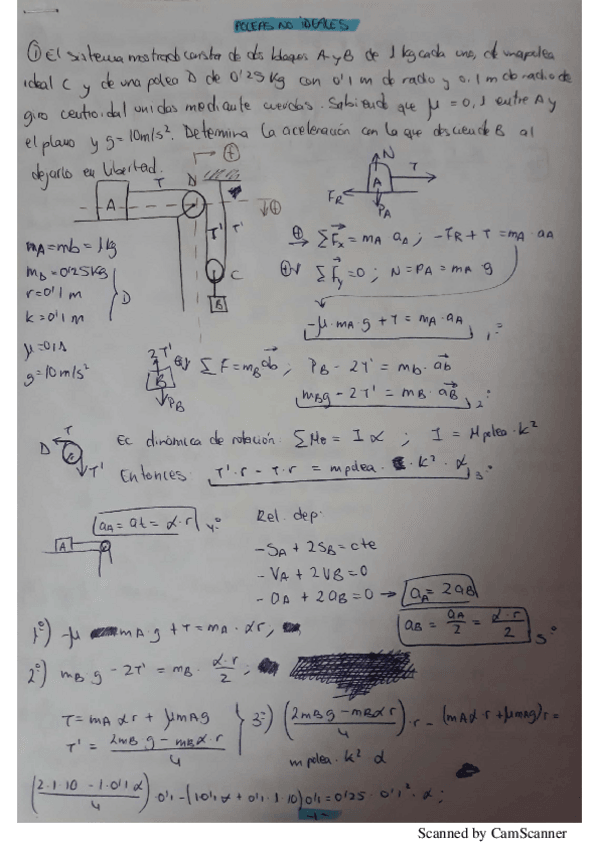 POLEAS NO IDEALES
① El sistema mostrado consta de dos bloques A y B de 1 kg cada uno, de una polea
ideal C y de una polea D de 0'25 kg con 0'1 m de radio y 0,1 m de radio de
giro centroidal unidas mediante cuerdas. Sabiendo que μ = 0,1 entre A y
el plano y g = 10 m/s². Determina la aceleración con la que desciende B al
dejarlo en libertad.
A T D ⊕
⊕
T' T'
C
B
N
T
A
FR
PA
mA = mb = 1 kg
mD = 0'25 kg
r = 0'1 m
k = 0'1 m
D
μ = 0,1
g = 10 m/s²
⊕ ΣFx = mA aA ; -FR + T = mA · aA
⊕ ΣFy = 0 ; N = PA = mA · g
-μ · mA g + T = mA · aA 1º
2T'
B
PB
⊕ ΣF = mB ab ; PB - 2T' = mb · ab
mB g - 2T' = mB · aB 2º
D T T'
Ec dinámica de rotación. ΣMo = I α ; I = Mpolea · k²
Entonces: T' · r - T · r = mpolea · k² · α 3º
aA = at = α · r 4º
A
Rel. dep:
- SA + 2SB = cte
- VA + 2VB = 0
- aA + 2aB = 0 → aA = 2aB
aB = aA/2 = α · r/2 5º
1º) -μ mA · g + T = mA · αr ;
2º) mB g - 2T' = mB · α · r/2 ;
T = mA α r + μ mA g
T' = 2mB g - mB α · r/4
3º) (2mB g - mB α r/4) · r - (mA α · r + μ mA g) r =
mpolea · k² · α
(2·1·10 - 1·0'1 α/4) 0'1 - (1 0'1 α + 0'1 · 1 · 10) 0'1 = 0'25 · 0'1² · α ;
-1-
Scanned by CamScanner